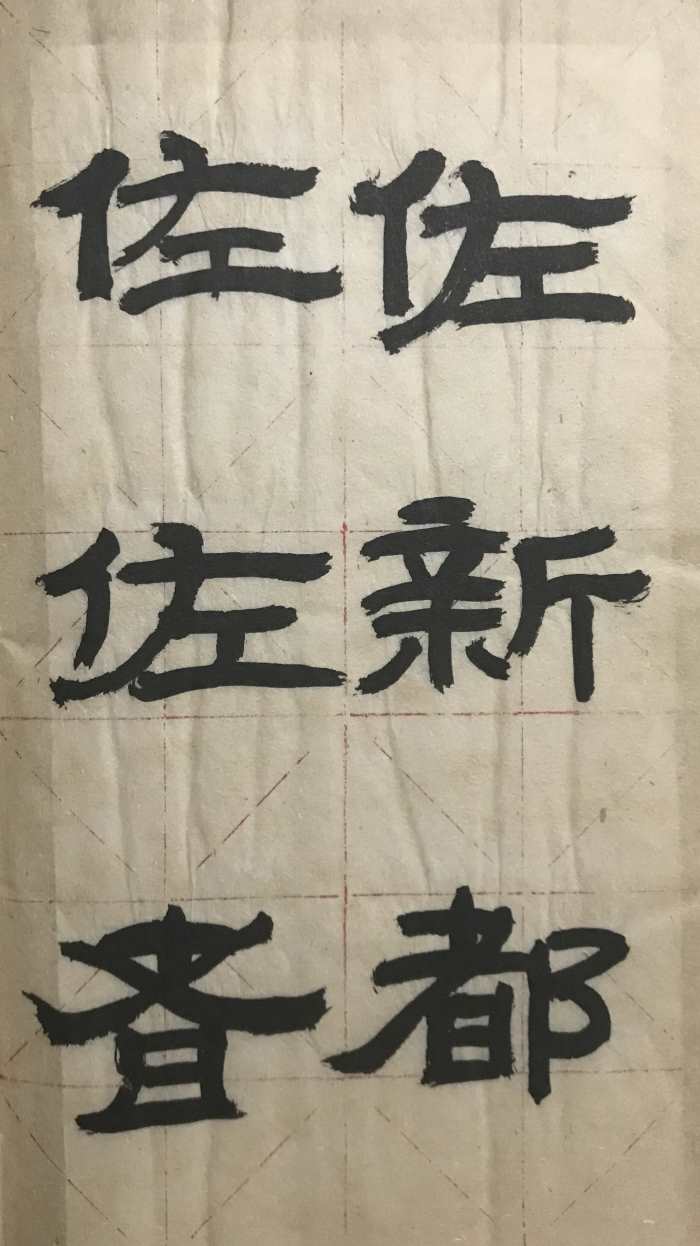 佐新都
佐佐查